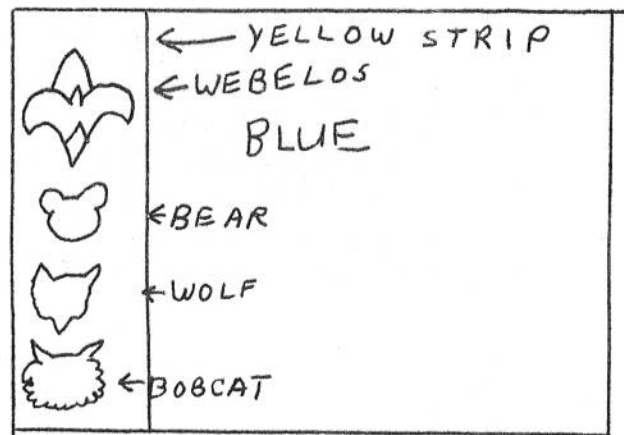 YELLOW STRIP
WEBELOS
BLUE
BEAR
WOLF
BOBCAT